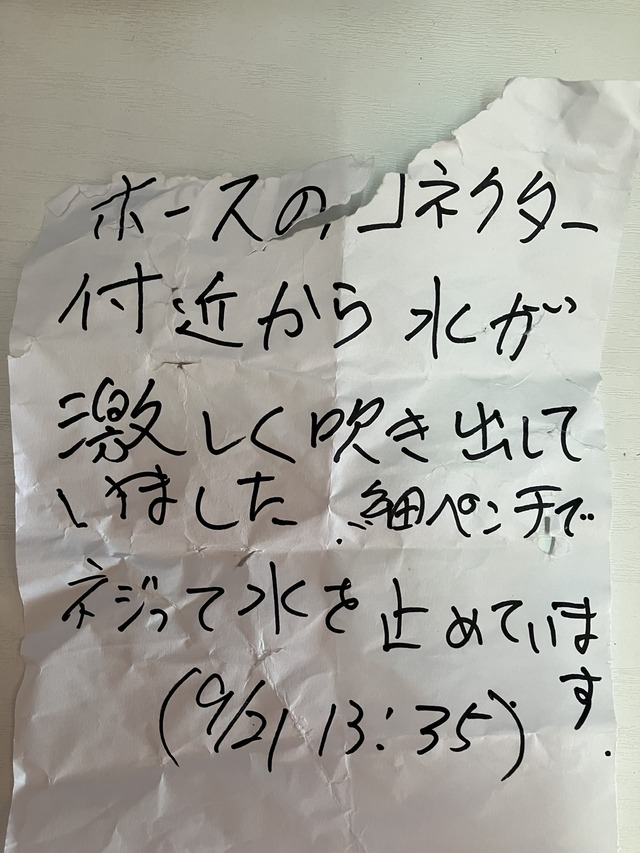 ホースのコネクター
付近から水が
激しく吹き出して
いました。細ペンチで
ネジって水を止めていま
す.
(9/21 13:35)